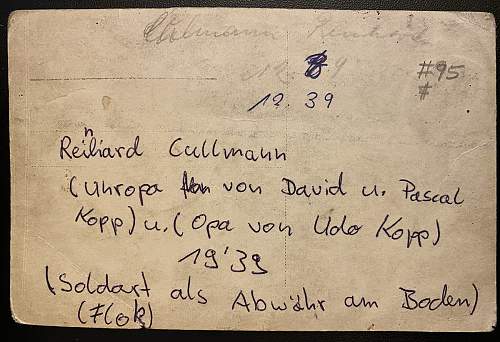 #95
12. 39
Reinhard Cullmann
(Uhropa von David u. Pascal
Kopp) u. (Opa von Udo Kopp)
19'39
(Soldart als Abwähr am Boden)
(Flok)